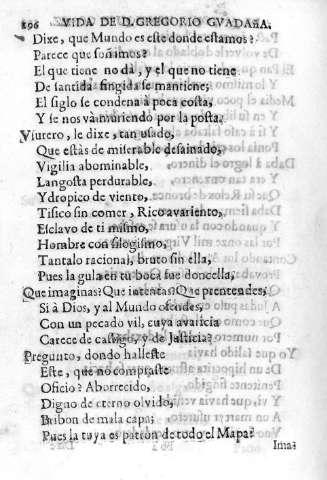 296 VIDA DE D. GREGORIO GVADAÑA.
Dixe, que Mundo es este donde estamos?
Parece que soñamos?
El que tiene no dà, y el que no tiene
De santidad fingida se mantiene;
El siglo se condena à poca costa,
Y se nos và muriendo por la posta.
Vsurero, le dixe, tan usado,
Que estàs de miserable desainado,
Vigilia abominable,
Langosta perdurable,
Ydropico de viento,
Tisico sin comer, Rico avariento,
Esclavo de ti mismo,
Hombre con silogismo,
Tantalo racional, bruto sin ella,
Pues la gula en tu boca fue doncella,
Que imaginas? Que intentas? Que prentendes,
Si à Dios, y al Mundo ofendes,
Con un pecado vil, cuya avaricia
Carece de castigo, y de Justicia?
Pregunto, dondo halleste
Este, que no compraste
Oficio? Aborrecido,
Digno de eterno olvido,
Bribon de mala capa;
Pues la tuya es patron de todo el Mapa?
Ima?